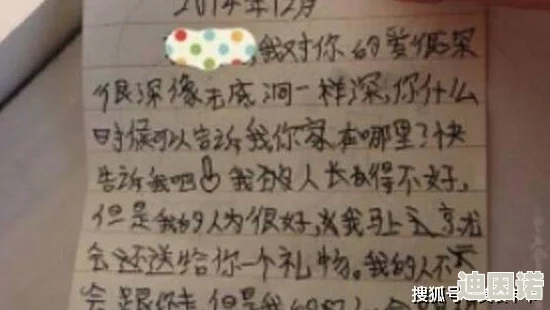 2014年12月
,我对你的爱很深
很深像无底洞一样深,你什么
时候可以告诉我你家在哪里了快
告诉我吧 我的人长得不好,
但是我的人为很好,我马上
会还送给你一个礼物。我的人不
会跟你走 但是我的
迪因诺
搜狐号